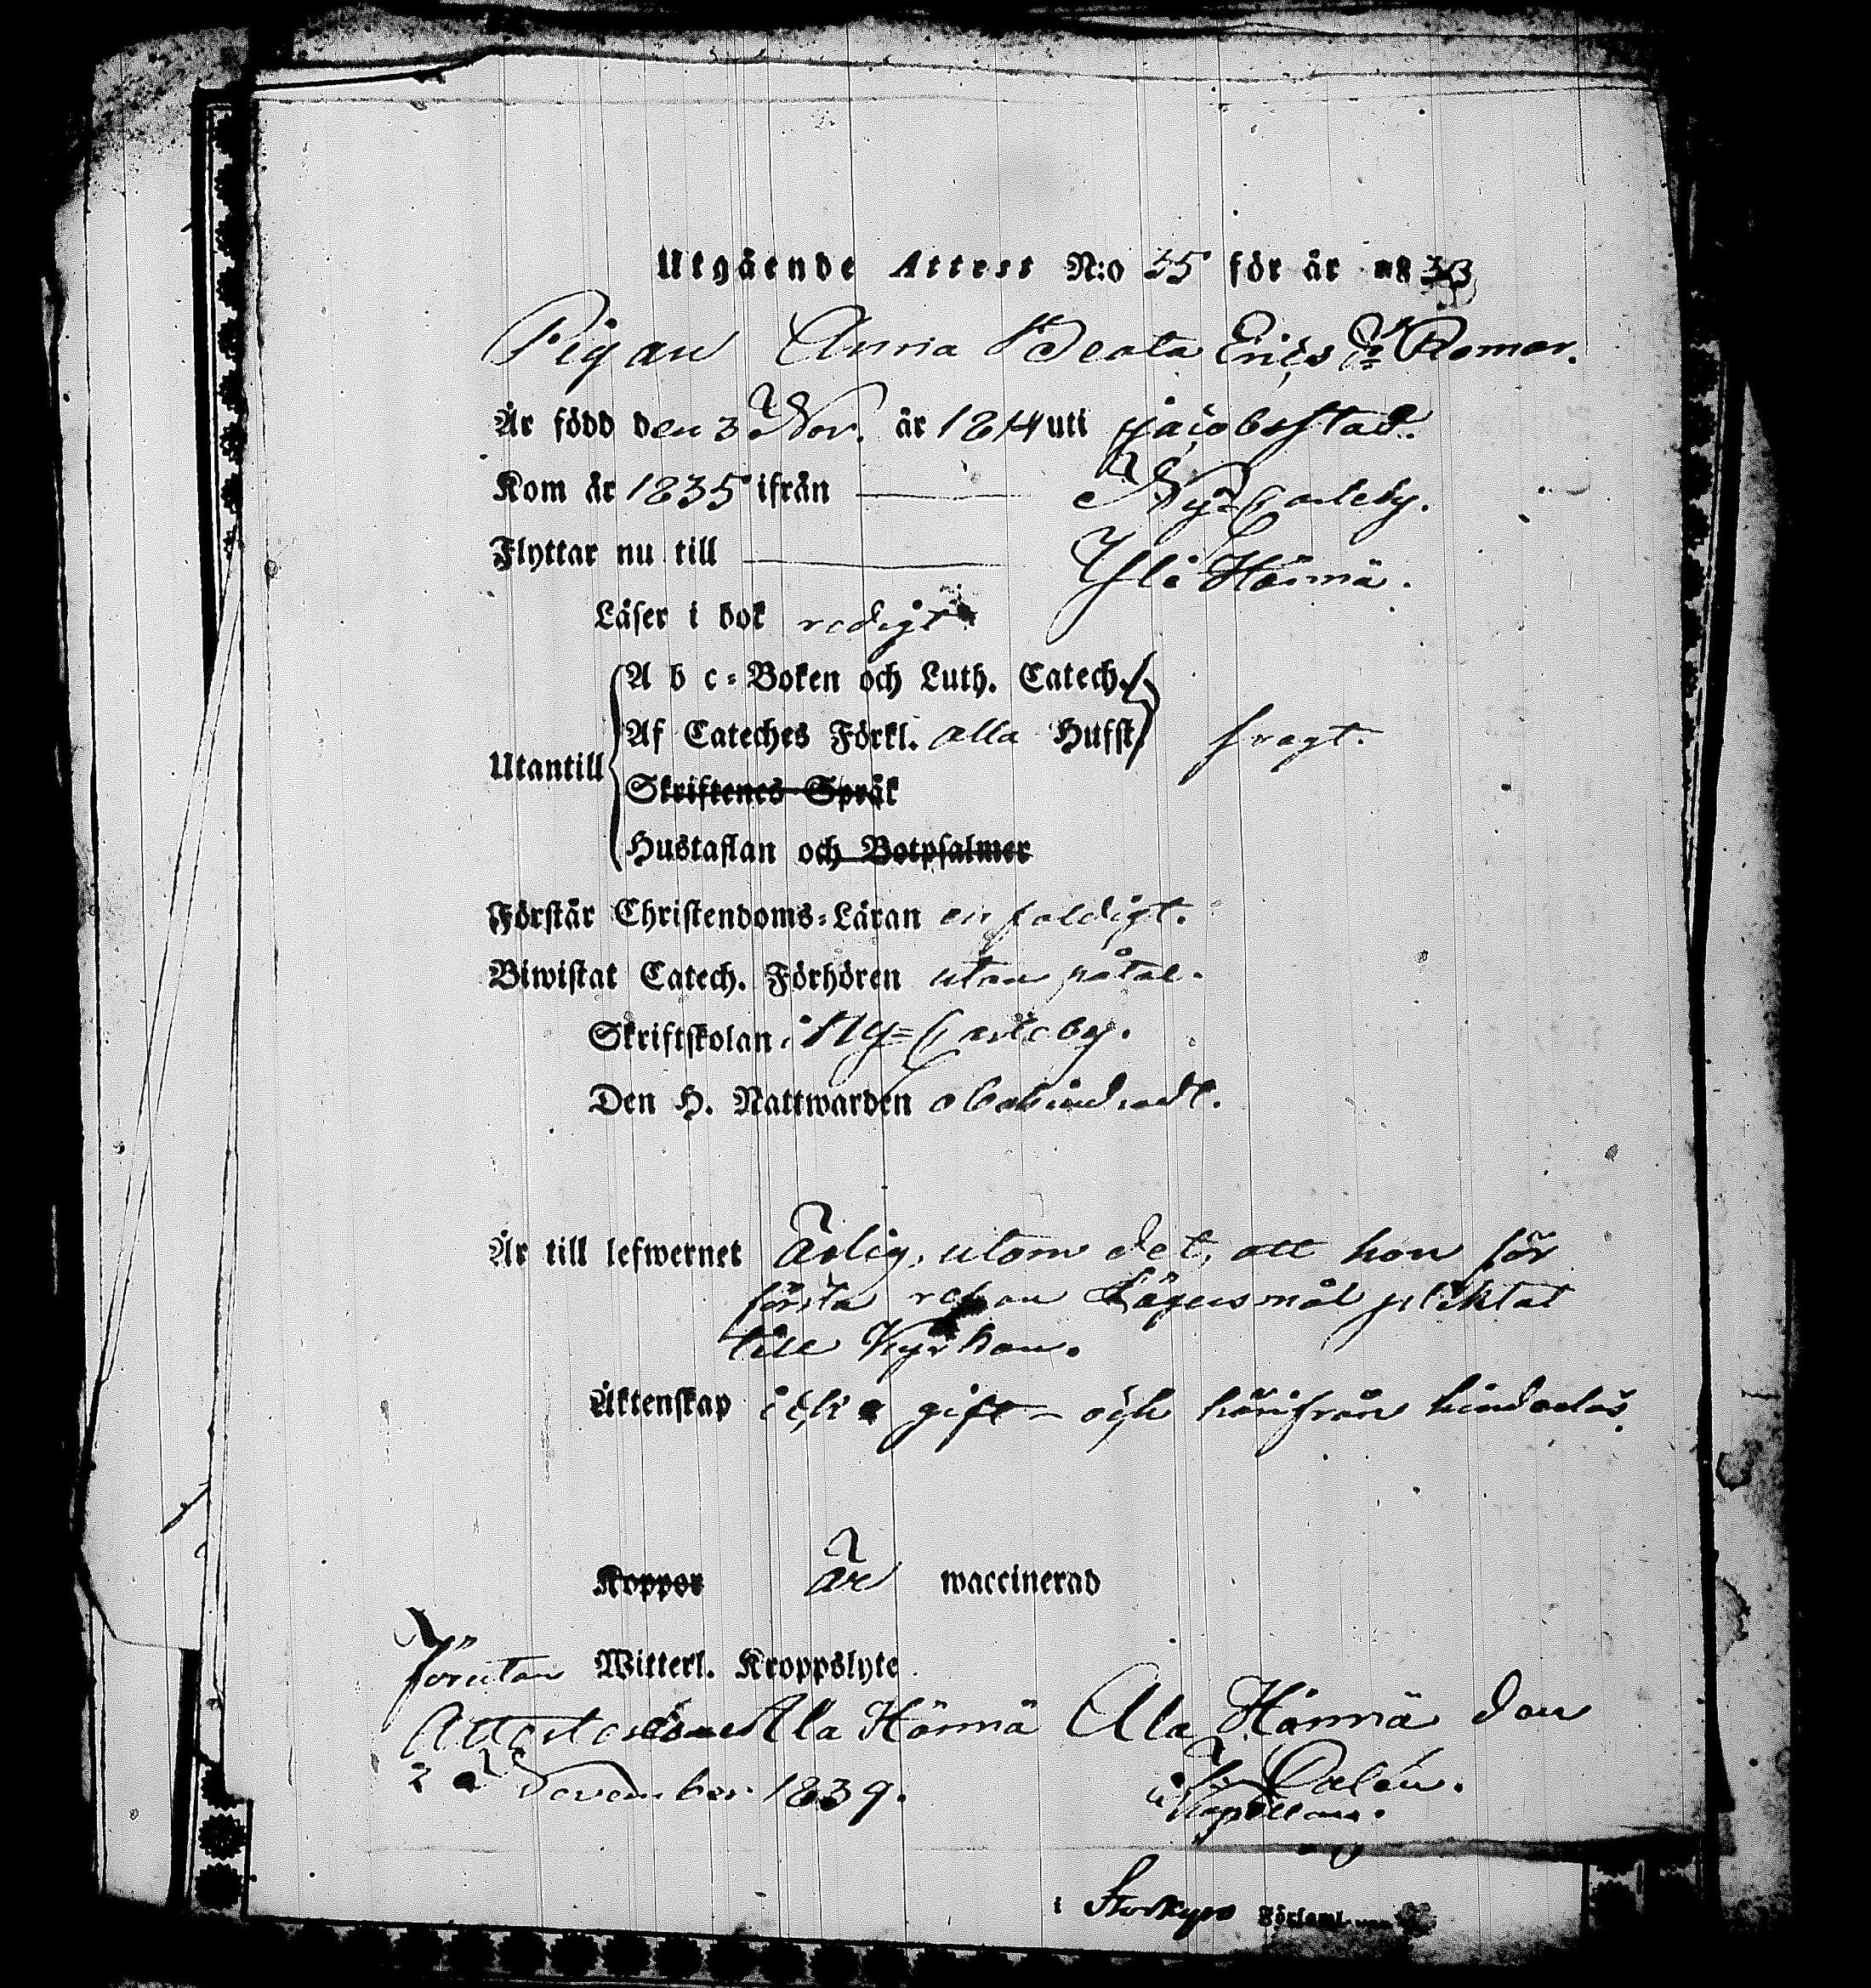 Utgående Attest N:o 55 för år 18
Pigan Anna Beata Erics Dr Romar.
Är född den 3 Nov. år 1814 uti Jacobsstad.
Kom år 1835 ifrån Ny=Carleby.
Flyttar nu till
Läser i bok redigt
A b c=Boken och Luth. Catech.
Utantill Af Cateches Förkl. alla Hufst.
Skriftenes Språk
Hustaflan och Botpsalmer
Förstår Christendoms=Läran enfaldigt.
Biwistat Catech. Förhören utan påtal.
Skriftskolan i Ny=Carleby.
Den H. Nattwarden obehindradt.
Är till lefwernet Ärlig, utom det, att hon för
första resan Lägersmål pliktat
till Kyrkan.
Äktenskap icke gift – och härifrån hinderlös.
Koppor är waccinerad
förutan Witterl. Kroppslyte
Ala Härmä Ala Härmä den
2 November 1839.
Kapellan.
i Storkyro Församl.